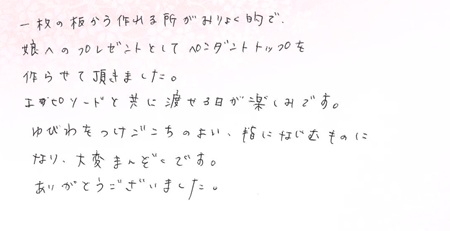 一枚の板から作れる所がみりょく的で、
娘へのプレゼントとしてペンダントトップを
作らせて頂きました。
エピソードと共に渡せる日が楽しみです。
ゆびわをつけごこちのよい、指になじむものに
なり、大変まんぞくです。
ありがとうございました。